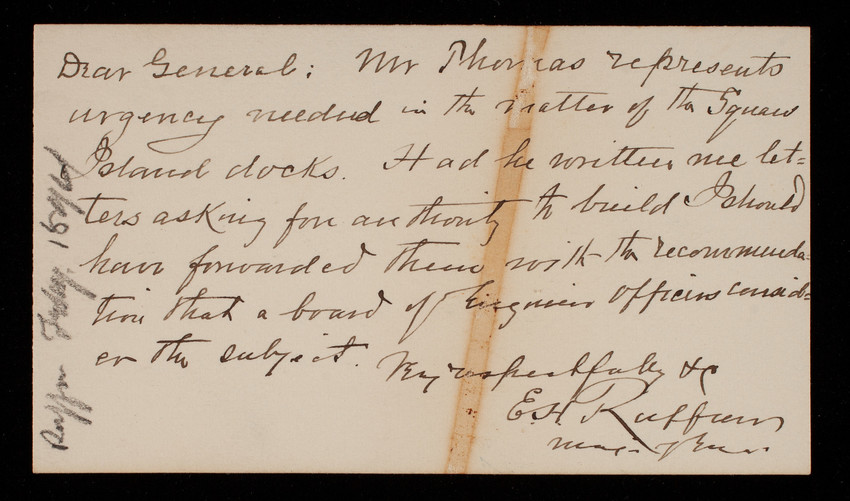 Dear General: Mr Thomas represents
urgency needed in the matter of the Squaw
Island docks. Had he written me let=
ters asking for authority to build I should
have forwarded them with the recommenda-
tion that a board of Engineer Officers consid=
er the subject.
Very respectfully &c
E.H. Ruffner
Maj. of Engrs.
Ruffner